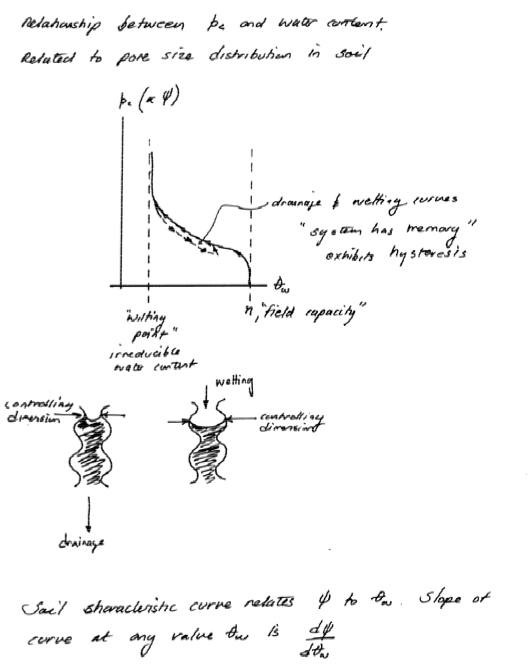 Relationship between pc and water content.
Related to pore size distribution in soil
pc (∝ ψ)
drainage & wetting curves
"system has memory"
exhibits hysteresis
θw
"wilting
point"
irreducible
water content
n, "field capacity"
wetting
controlling
dimension
controlling
dimension
drainage
Soil characteristic curve relates ψ to θw. Slope of
curve at any value θw is dψ/dθw